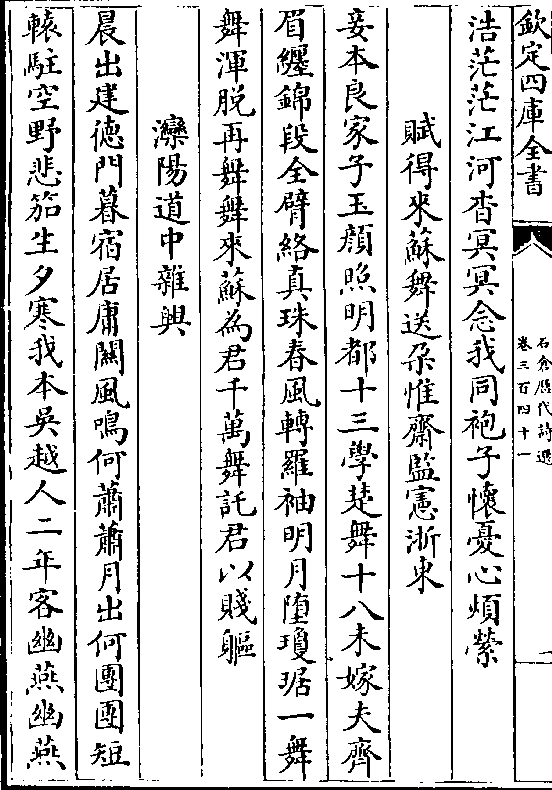 欽定四庫全書
石倉歷代詩選
卷三百四十一
浩茫茫江河杳冥冥念我同袍子懷憂心煩縈
賦得來蘇舞送朵惟齋監憲浙東
妾本良家子玉顔照明都十三學楚舞十八未嫁夫齊
眉纒錦段全臂絡真珠春風轉羅袖明月墮瓊琚一舞
舞渾脱再舞舞來蘇為君千萬舞託君以賤軀
灤陽道中雜興
晨出建徳門暮宿居庸闗風鳴何蕭蕭月出何團團短
轅駐空野悲笳生夕寒我本吳越人二年客幽燕幽燕